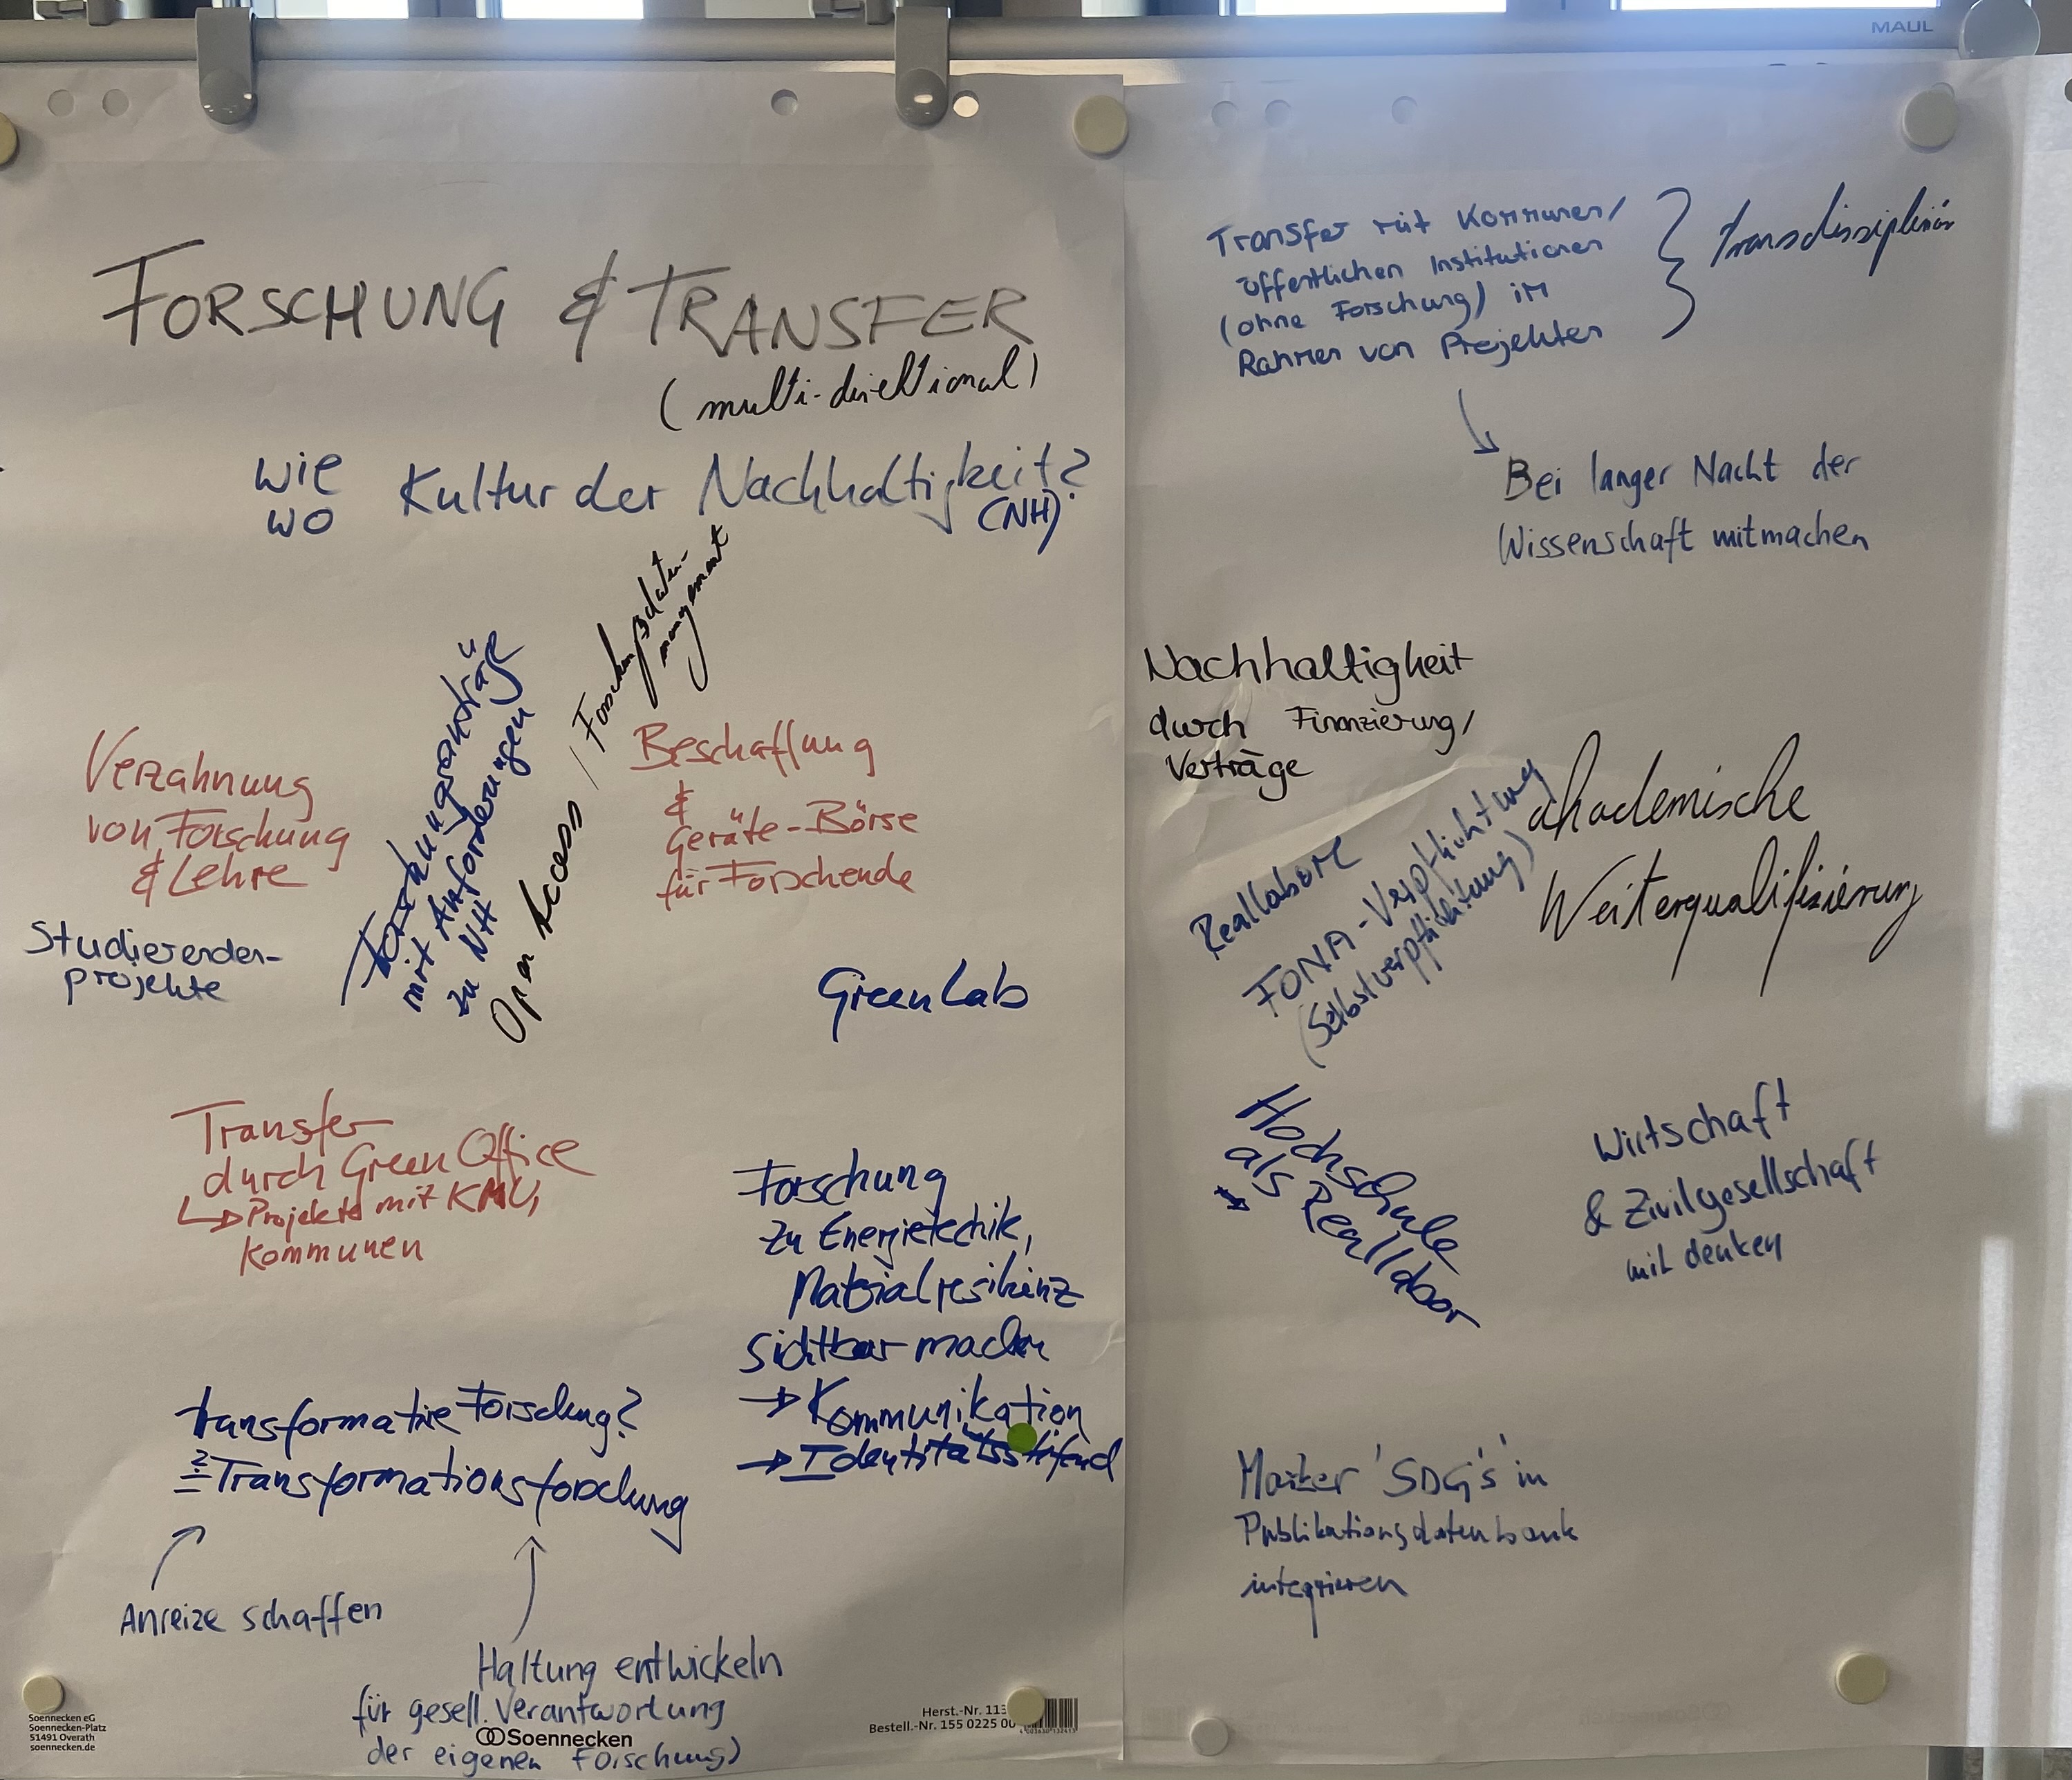 MAUL
FORSCHUNG & TRANSFER
(multi-direktional)
wie
wo
Kultur der Nachhaltigkeit?
(NH)
Forschungsanträge
mit Anforderungen
zu NH
Open Access / Forschungsdaten-
management
Verzahnung
von Forschung
& Lehre
Beschaffung
&
Geräte-Börse
für Forschende
Studierenden-
projekte
Green Lab
Transfer
durch Green Office
↳ Projekte mit KMU,
Kommunen
Forschung
zu Energietechik,
Materialresilienz
sichtbar machen
→ Kommunikation
→ Identitätsstifend
transformative Forschung?
≟ Transformationsforschung
Anreize schaffen
Haltung entwickeln
für gesell. Verantwortung
der eigenen Forschung)
Soennecken eG
Soennecken-Platz
51491 Overath
soennecken.de
Soennecken
Herst.-Nr. 113
Bestell.-Nr. 155 0225 00
Transfer mit Kommunen/
öffentlichen Institutionen
(ohne Forschung) im
Rahmen von Projekten
transdissiplinär
Bei langer Nacht der
Wissenschaft mitmachen
Nachhaltigkeit
durch Finanzierung/
Verträge
akademische
Weiterqualifizierung
Reallabore
FONA-Verpflichtung
(Selbstverpflichtung)
Hochschule
als Reallabor
Wirtschaft
& Zivilgesellschaft
mit denken
'SDG's' in
Publikationsdatenbank
integrieren